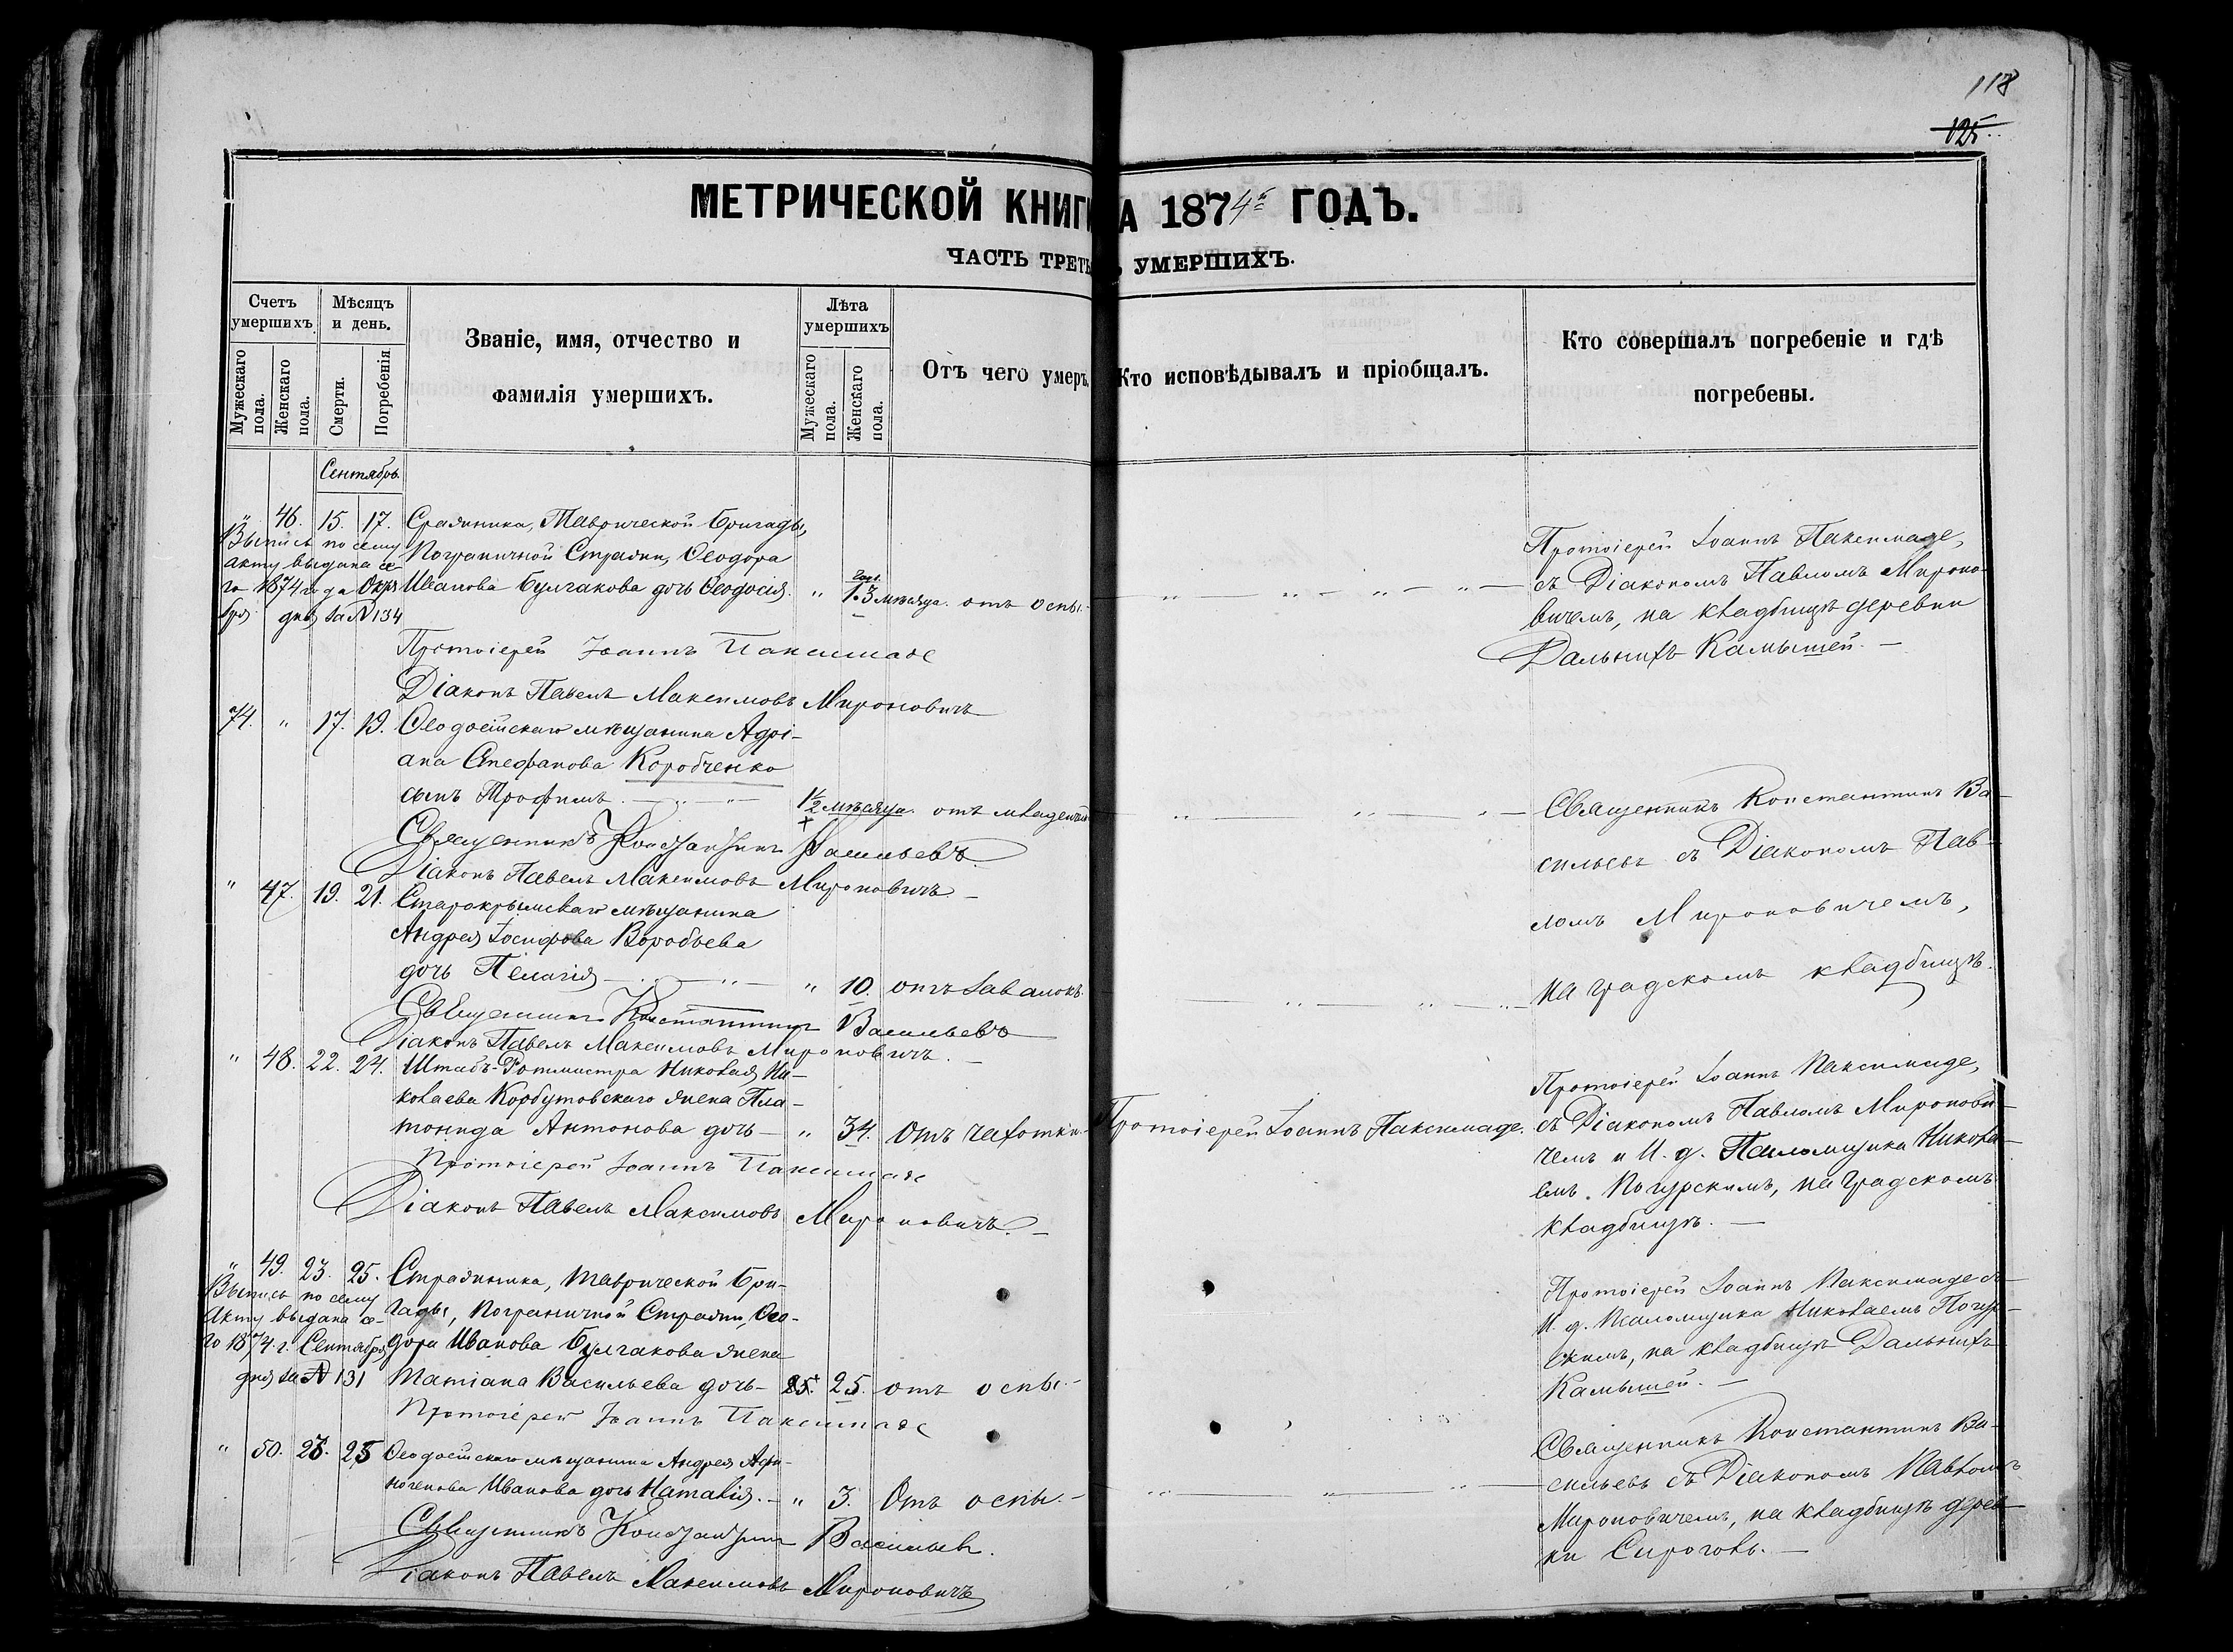 118
125.
МЕТРИЧЕСКОЙ КНИГ А 1874й ГОДЪ.
ЧАСТЬ ТРЕТЬ УМЕРШИХЪ.
Счетъ умершихъ
Мѣсяцъ и день.
Званіе, имя, отчество и фамилія умершихъ.
Лѣта умершихъ
Отъ чего умеръ.
Кто исповѣдывалъ и пріобщалъ.
Кто совершалъ погребеніе и гдѣ погребены.
Мужескаго пола.
Женскаго пола.
Смерти.
Погребенія.
Мужескаго пола.
Женскаго пола.
Сентябрь.
" 46. 15. 17. Стражника, Таврической Бригады,
Пограничной Стражи, Ѳеодора
Иванова Булгакова дочь Ѳеодосія. " 1 год. 3 мѣсяца. отъ оспы.
Выпись по сему
акту выдана се-
го 1874 года Октя
бря дня за № 134
Протоіерей Іоаннъ Паксимаде,
съ Діакономъ Павломъ Мироно-
вичемъ, на кладбищѣ деревни
Дальнихъ Камышей. —
Протоіерей Іоаннъ Паксимаде
Діаконъ Павелъ Максимовъ Мироновичъ
74. " 17. 19. Ѳеодосійскаго мѣщанина Адрі-
ана Стефанова Коробченко
сынъ Трофимъ. 1½ мѣсяца. отъ младенч
Священникъ Константинъ Ва-
сильевъ съ Діакономъ Пав-
ломъ Мироновичемъ,
на градскомъ кладбищѣ.
Священникъ Константинъ Васильевъ.
Діаконъ Павелъ Максимовъ Мироновичъ. —
" 47. 19. 21. Старокрымскаго мѣщанина
Андрея Іосифова Воробьева
дочь Пелагія " 10. отъ завалокъ.
Священникъ Константинъ Васильевъ
Діаконъ Павелъ Максимовъ Мироновичъ. —
" 48. 22. 24. Штабъ-Ротмистра Николая Ни-
колаева Корбутовскаго жена Пла-
тонида Антонова дочь — " 34. Отъ чахотки. Протоіерей Іоаннъ Паксимаде.
Протоіерей Іоаннъ Паксимаде,
съ Діакономъ Павломъ Миронови-
чемъ и И. д. Псаломщика Никола-
емъ Погурскимъ, на Градскомъ
кладбищѣ. —
Протоіерей Іоаннъ Паксимаде
Діаконъ Павелъ Максимовъ Мироновичъ. —
" 49. 23. 25. Стражника, Таврической Бри-
гады, Пограничной Стражи, Ѳео-
дора Иванова Булгакова жена
Татіана Васильева дочь — 25. 25. отъ оспы. —
Выпись по сему
акту выдана се-
го 1874 г. Сентября
дня за № 131
Протоіерей Іоаннъ Паксимаде съ
И. д. Псаломщика Николаемъ Погур-
скимъ, на кладбищѣ Дальнихъ
Камышей. —
Протоіерей Іоаннъ Паксимаде
" 50. 23. 25 Ѳеодосійскаго мѣщанина Андрея Афи-
ногенова Иванова дочь Наталія. — " 3. Отъ оспы. —
Священникъ Константинъ Ва-
сильевъ съ Діакономъ Павломъ
Мироновичемъ, на кладбищѣ дерев-
ни Сироговъ. —
Священникъ Константинъ Васильевъ.
Діаконъ Павелъ Максимовъ Мироновичъ